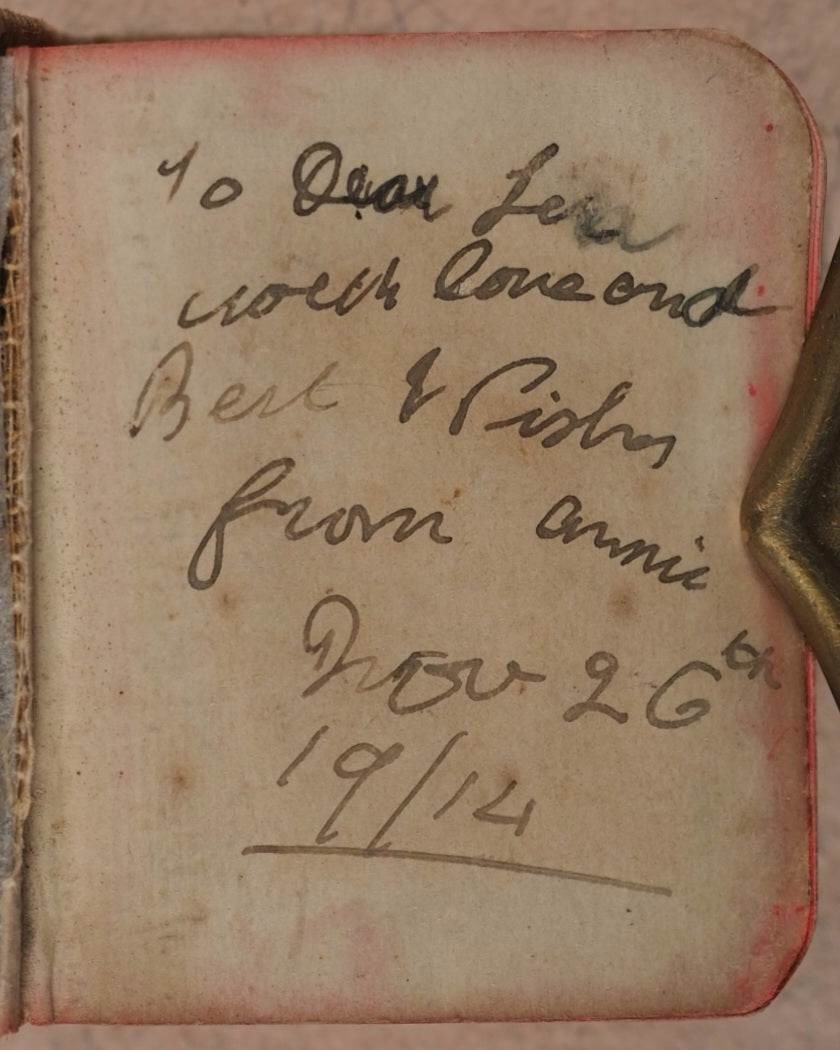 To Dear
with love and
Best Wishes
from annie
Nov 26th
19/14